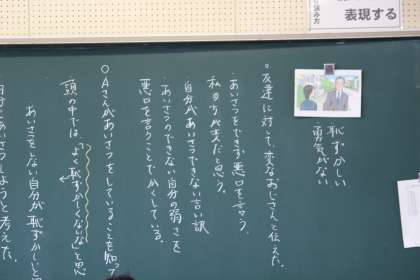 組み方
表現する
恥ずかしい
勇気がない
○友達に対して、変なおじさんと伝えた。
・あいさつをできず悪口を言う。
私の方が変だと思う。
・自分があいさつできない言い訳
・あいさつのできない自分の弱さを
悪口を言うことでかくしている。
○Aさんがあいさつをしていることを知って
頭の中では、「よく恥ずかしくないな」と思
あいさつをしない自分が恥ずかしいと
自分にあいさつしようと考えた。